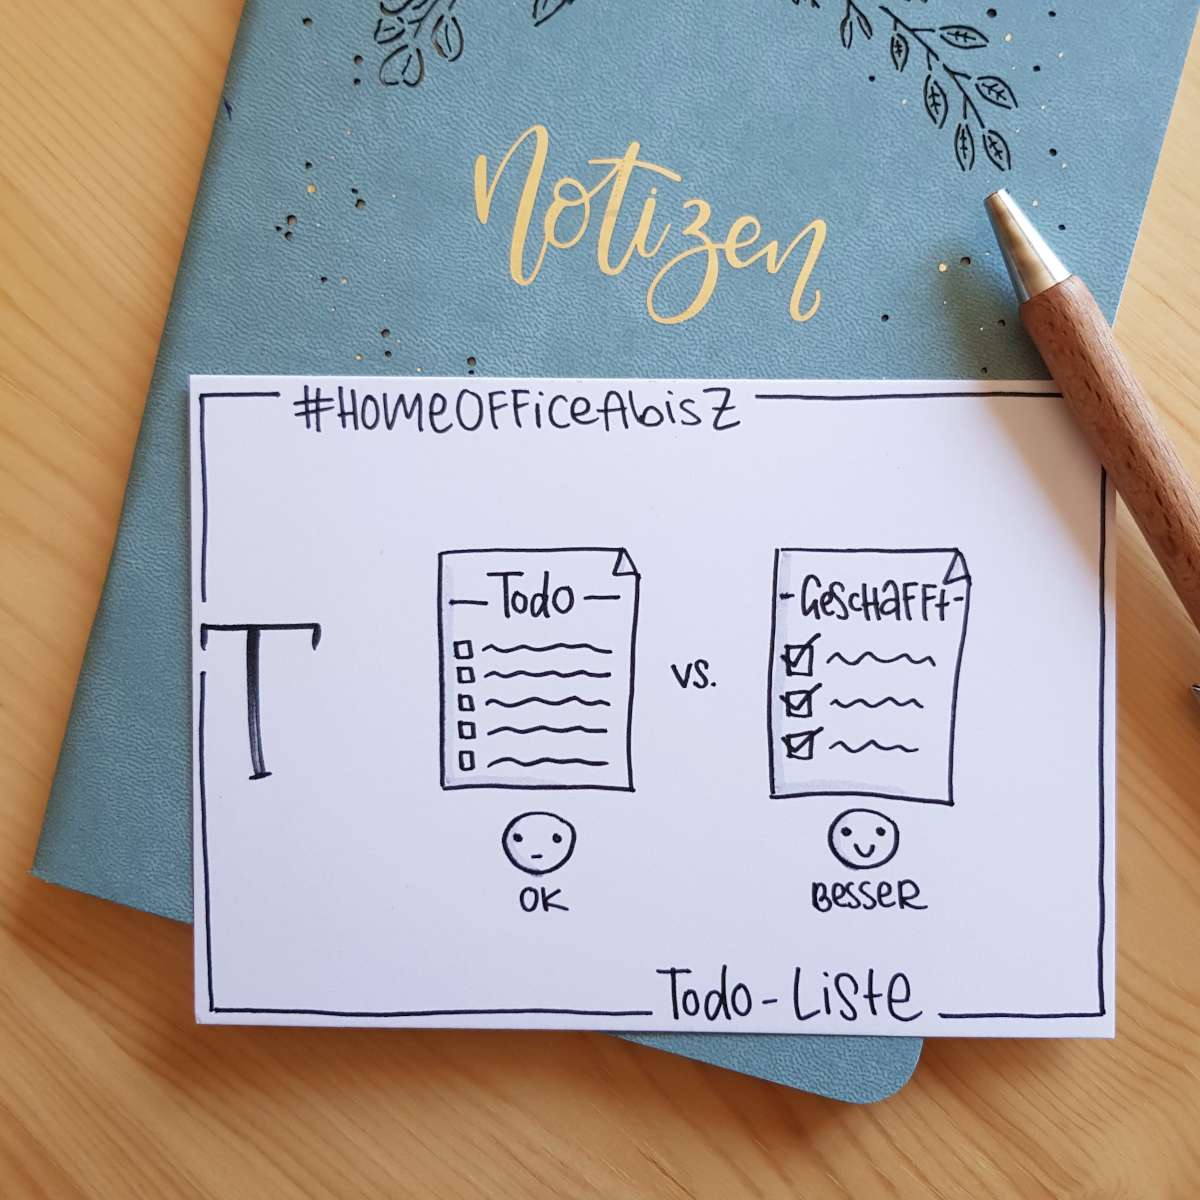 Notizen
#HomeOfficeAbisZ
T
Todo
vs.
Geschafft
OK
Besser
Todo-Liste